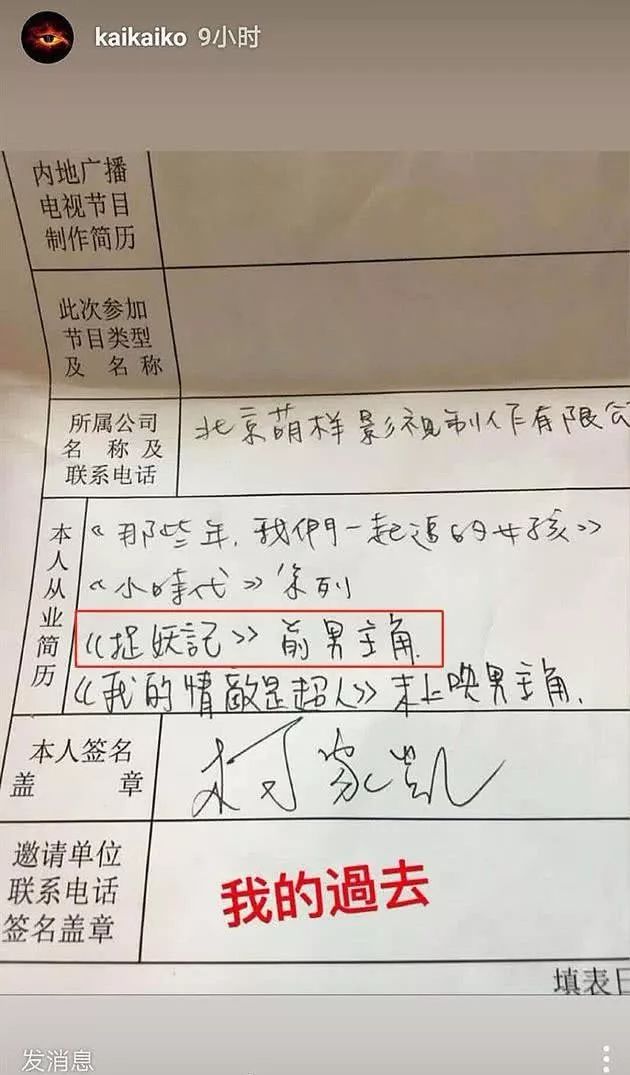 kaikaiko 9小时
内地广播
电视节目
制作简历
此次参加
节目类型
及 名 称
所属公司
名 称 及
联系电话
北京萌样影视制作有限公
本人从业简历
《那些年,我們一起追的女孩》
《小時代》系列
《捉妖記》前男主角.
《我的情敵是超人》未上映男主角.
本人签名
盖 章
柯家凯
邀请单位
联系电话
签名盖章
我的過去
填表日
发消息